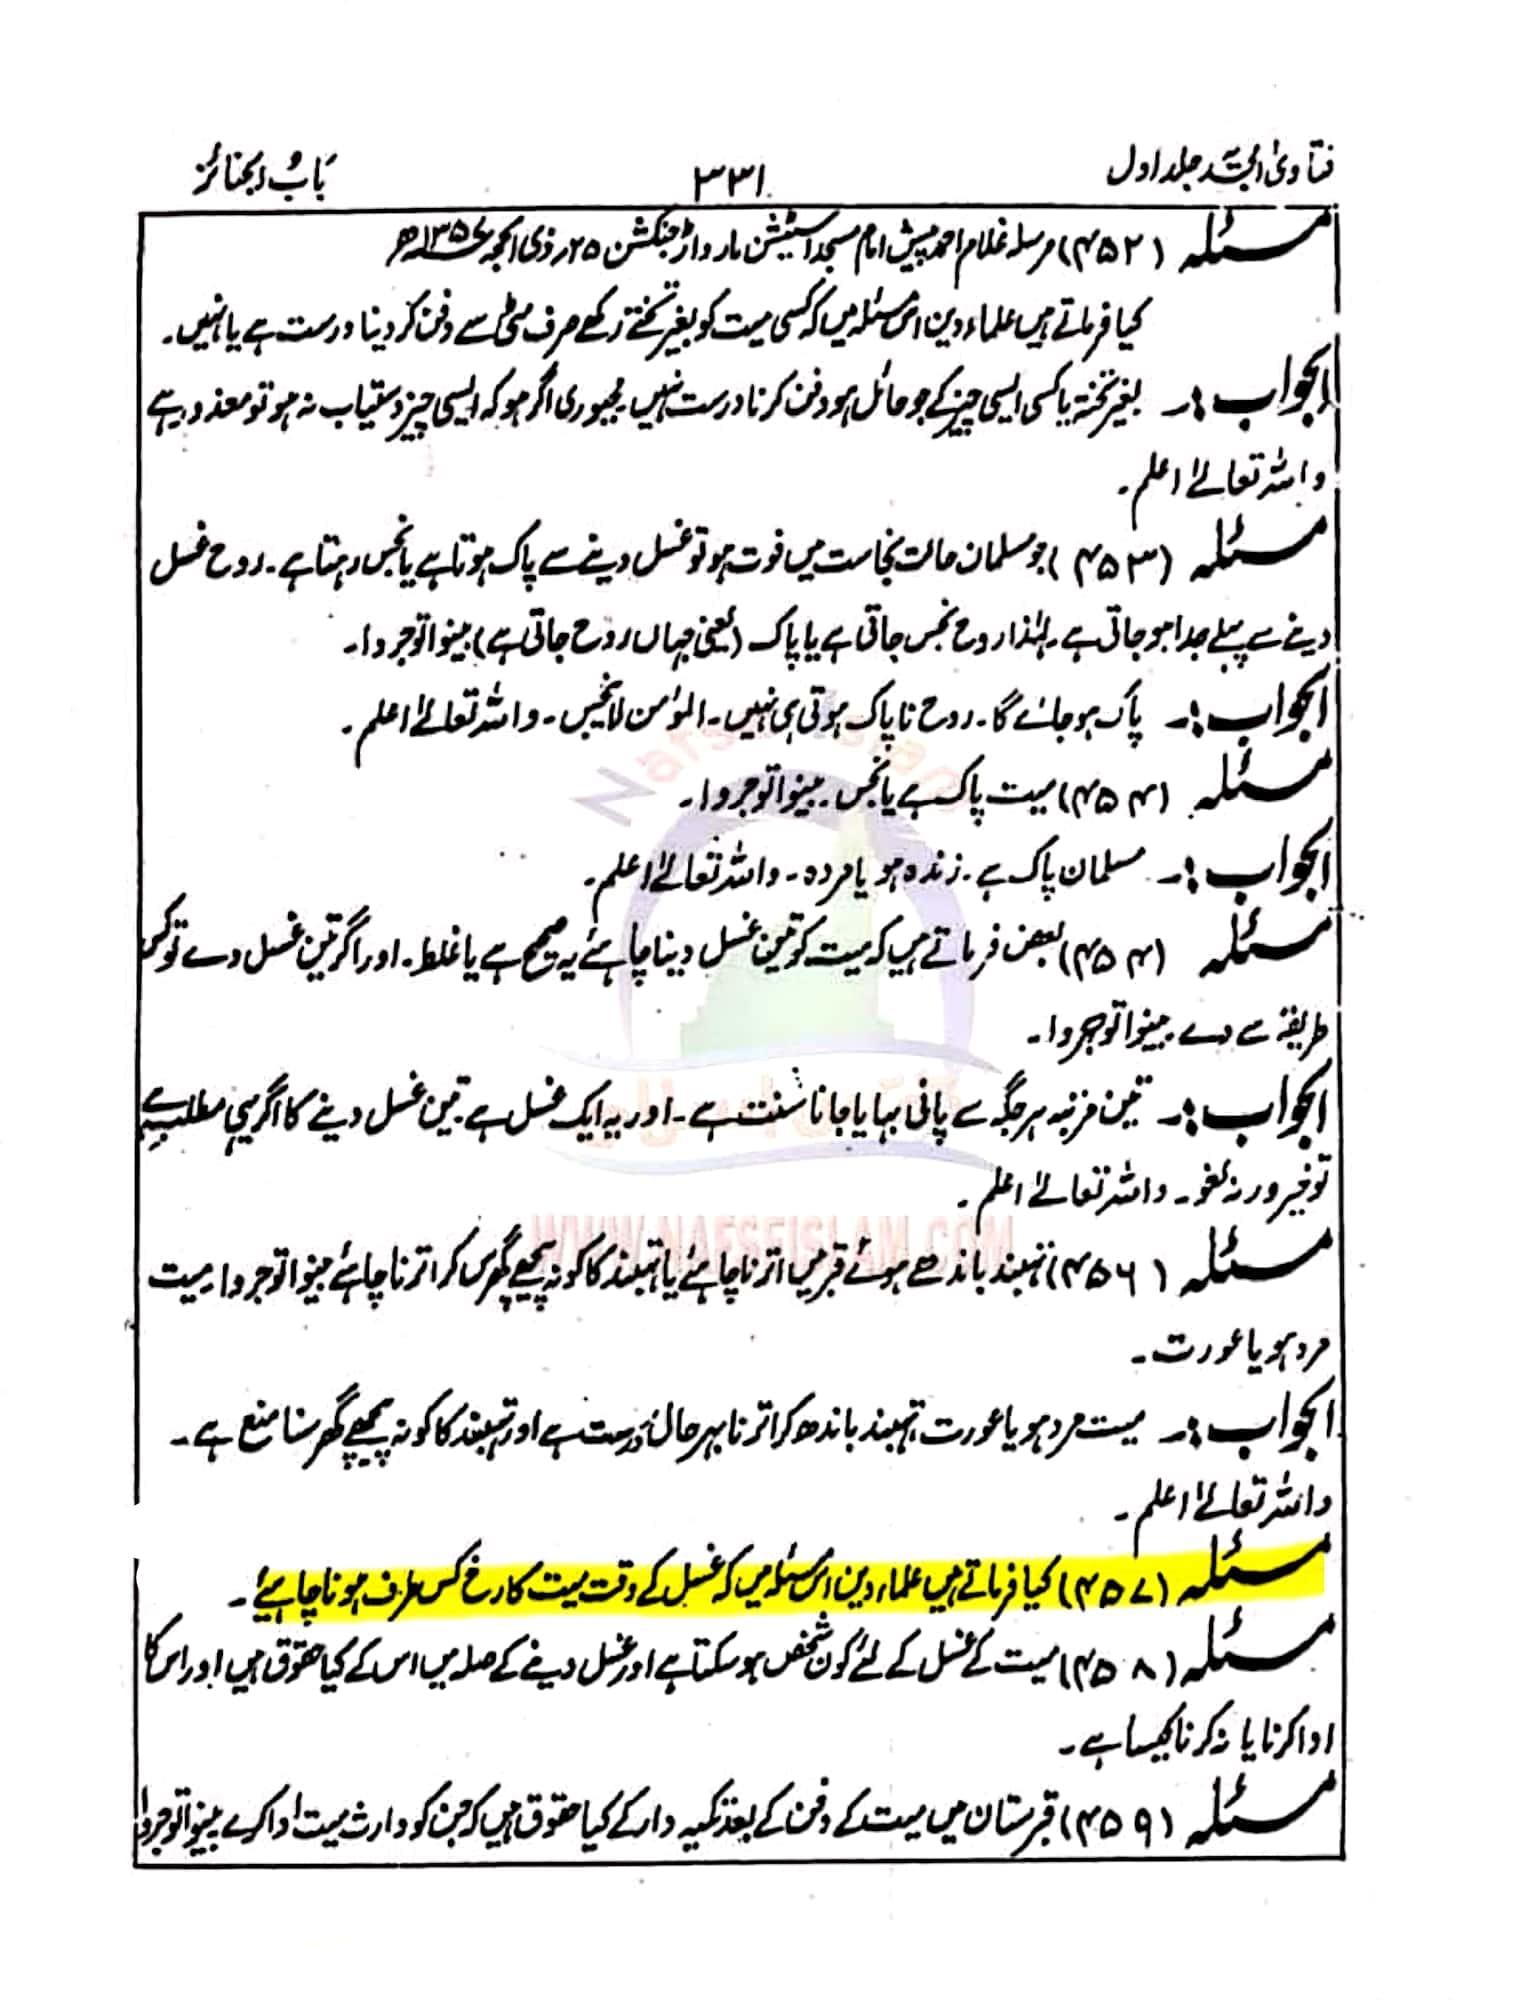 فتاویٰ امجدیہ جلد اول
۳۳۱
باب الجنائز
مسئلہ (۴۵۲) مرسلہ غلام احمد پیش امام مسجد اسٹیشن مارواڑ جنکشن ۲۵ر ذی الحجہ
کیا فرماتے ہیں علماء دین اس مسئلہ میں کہ کسی میت کو بغیر تختے رکھے صرف مٹی سے دفن کر دینا درست ہے یا نہیں۔
الجواب :۔ بغیر تختہ یا کسی ایسی چیز کے جو حائل ہو دفن کرنا درست نہیں۔ مجبوری اگر ہو کہ ایسی چیز دستیاب نہ ہو تو معذور ہے
واللہ تعالیٰ اعلم۔
مسئلہ (۴۵۳) جو مسلمان حالت نجاست میں فوت ہو تو غسل دینے سے پاک ہوتا ہے یا نجس رہتا ہے۔ روح غسل
دینے سے پہلے جدا ہو جاتی ہے۔ لہٰذا روح نجس جاتی ہے یا پاک (یعنی جہاں روح جاتی ہے) بینوا توجروا۔
الجواب :۔ پاک ہو جائے گا۔ روح ناپاک ہوتی ہی نہیں۔ المؤمن لاینجس۔ واللہ تعالیٰ اعلم۔
مسئلہ (۴۵۴) میت پاک ہے یا نجس۔ بینوا توجروا۔
الجواب :۔ مسلمان پاک ہے۔ زندہ ہو یا مردہ۔ واللہ تعالیٰ اعلم۔
مسئلہ (۴۵۴) بعض فرماتے ہیں کہ میت کو تین غسل دینا چاہئے یہ صحیح ہے یا غلط۔ اور اگر تین غسل دے تو کس
طریقہ سے دے۔ بینوا توجروا۔
الجواب :۔ تین مرتبہ ہر جگہ سے پانی بہایا جانا سنت ہے۔ اور یہ ایک غسل ہے تین غسل دینے کا اگر یہی مطلب ہے
تو خیر ورنہ لغو۔ واللہ تعالیٰ اعلم۔
WWW.NAFSEISLAM.COM
مسئلہ (۴۵۶) تہبند باندھے ہوئے قبر میں اترنا چاہئے یا تہبند کا کونہ پیچھے گھرس کر اترنا چاہئے بینوا توجروا۔ میت
مرد ہو یا عورت۔
الجواب :۔ میت مرد ہو یا عورت، تہبند باندھ کر اترنا بہر حال درست ہے اور تہبند کا کونہ پیچھے گھرسنا منع ہے۔
واللہ تعالیٰ اعلم۔
مسئلہ (۴۵۷) کیا فرماتے ہیں علماء دین اس مسئلہ میں کہ غسل کے وقت میت کا رخ کس طرف ہونا چاہئے۔
مسئلہ (۴۵۸) میت کے غسل کے لئے کون شخص ہو سکتا ہے اور غسل دینے کے صلہ میں اس کے کیا حقوق ہیں اور اس کا
ادا کرنا یا نہ کرنا کیسا ہے۔
مسئلہ (۴۵۹) قبرستان میں میت کے دفن کے بعد تکیہ دار کے کیا حقوق ہیں کہ جن کو وارث میت ادا کرے بینوا توجروا